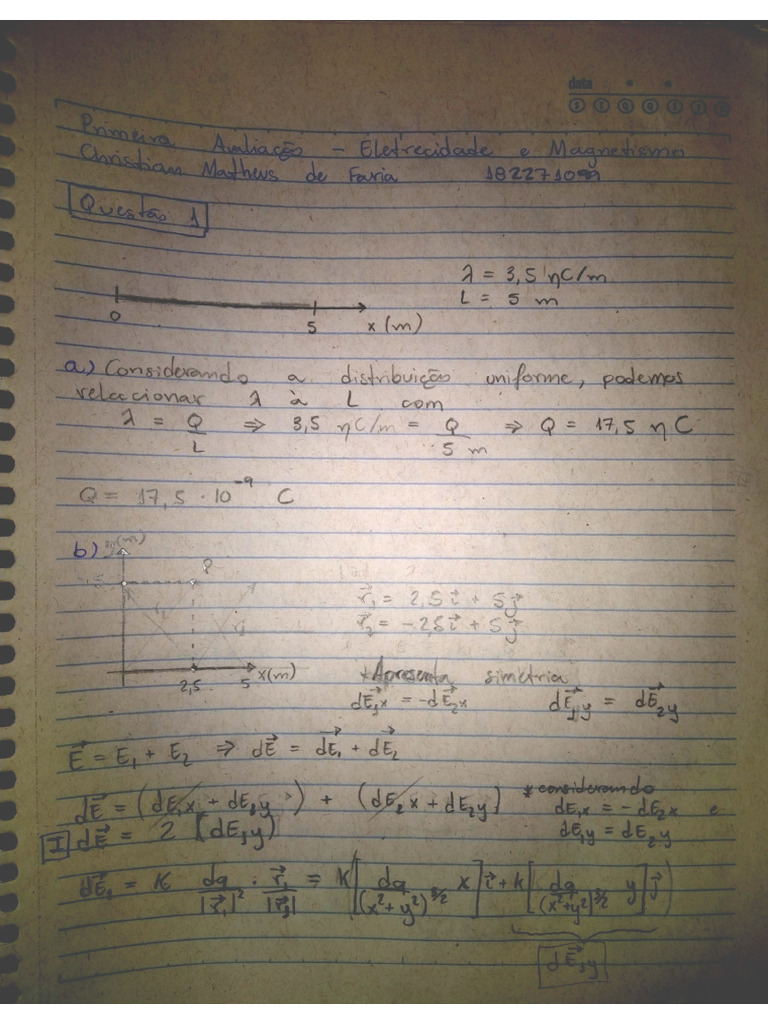 data
S T Q Q S S D
Primeira Avaliação - Eletrecidade e Magnetismo
Christian Matheus de Faria 182271099
Questão 1
λ = 3,5 ηC/m
L = 5 m
0 5 x (m)
a) Considerando a distribuição uniforme, podemos
relacionar λ à L com
λ = Q/L ⇒ 3,5 ηC/m = Q/5 m ⇒ Q = 17,5 ηC
Q = 17,5 · 10⁻⁹ C
b) y(m)
P
r⃗₁ = 2,5 i⃗ + 5 j⃗
r⃗₂ = -2,5 i⃗ + 5 j⃗
2,5 5 x(m)
*Apresenta simetria
dE⃗₁x = -dE⃗₂x dE⃗₁y = dE⃗₂y
E⃗ = E₁ + E₂ ⇒ dE⃗ = dE⃗₁ + dE⃗₂
dE⃗ = (dE₁x + dE₁y) + (dE₂x + dE₂y)
*considerando
dE₁x = -dE₂x e
dE₁y = dE₂y
I dE⃗ = 2 (dE₁y)
dE⃗₁ = K dq/|r⃗₁|² · r⃗₁/|r⃗₁| = K[dq/(x²+y²)^3/2 x] i⃗ + K[dq/(x²+y²)^3/2 y] j⃗
dE⃗₁y